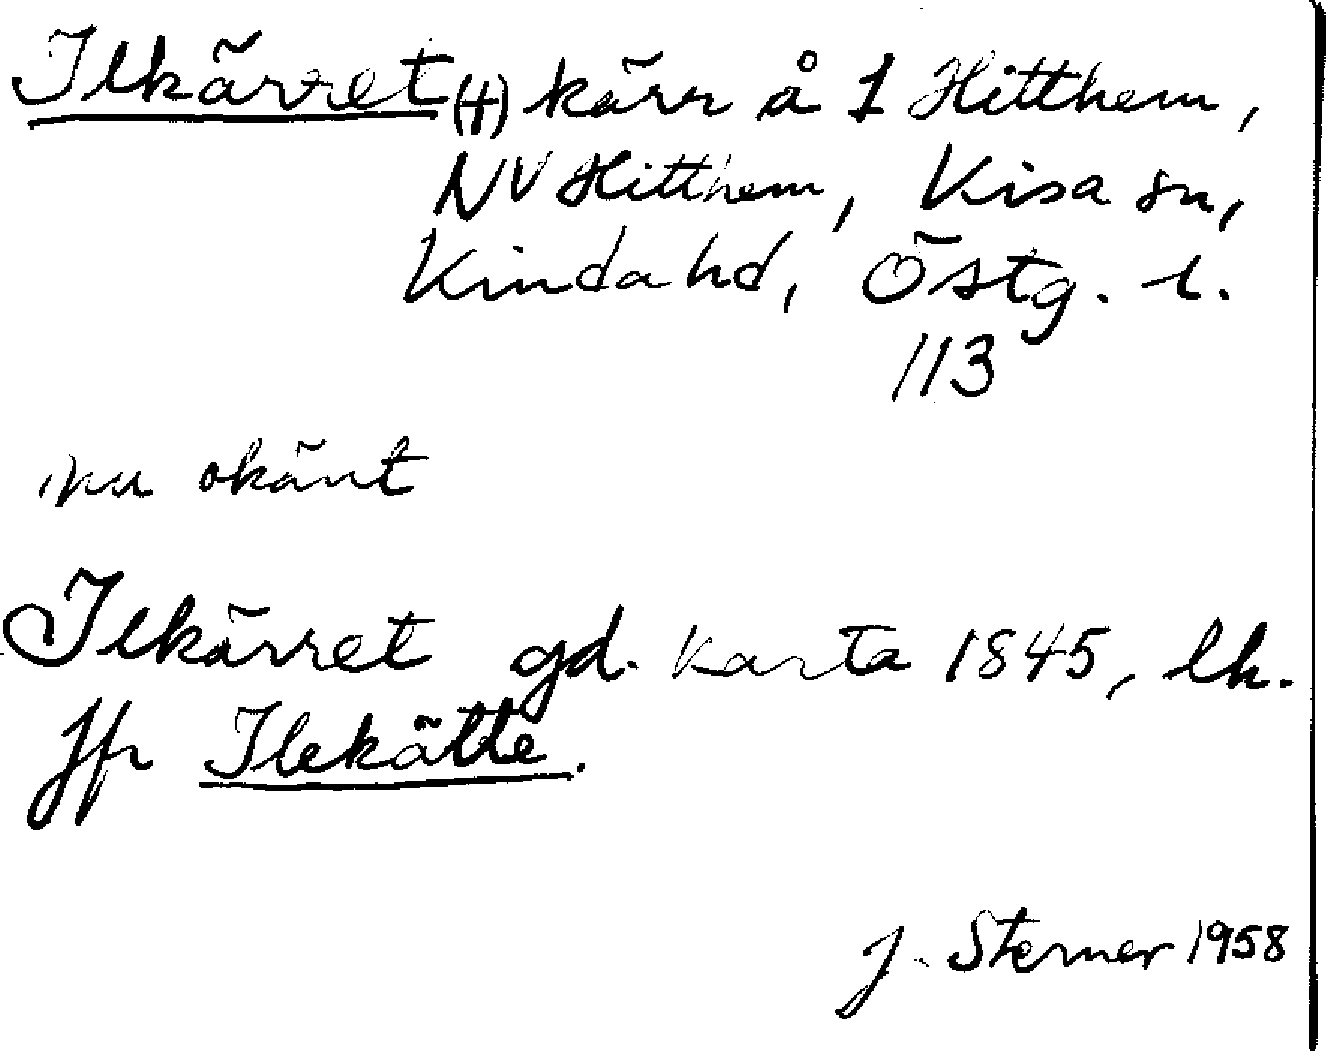 Ilkärret (†) kärr å 1 Hitthem,
NV Hitthem, Kisa sn,
Kinda hd, Östg. l.
113
nu okänt
Ilkärret gd. karta 1845, lh.
Jfr Ilekätte.
J. Sterner 1958